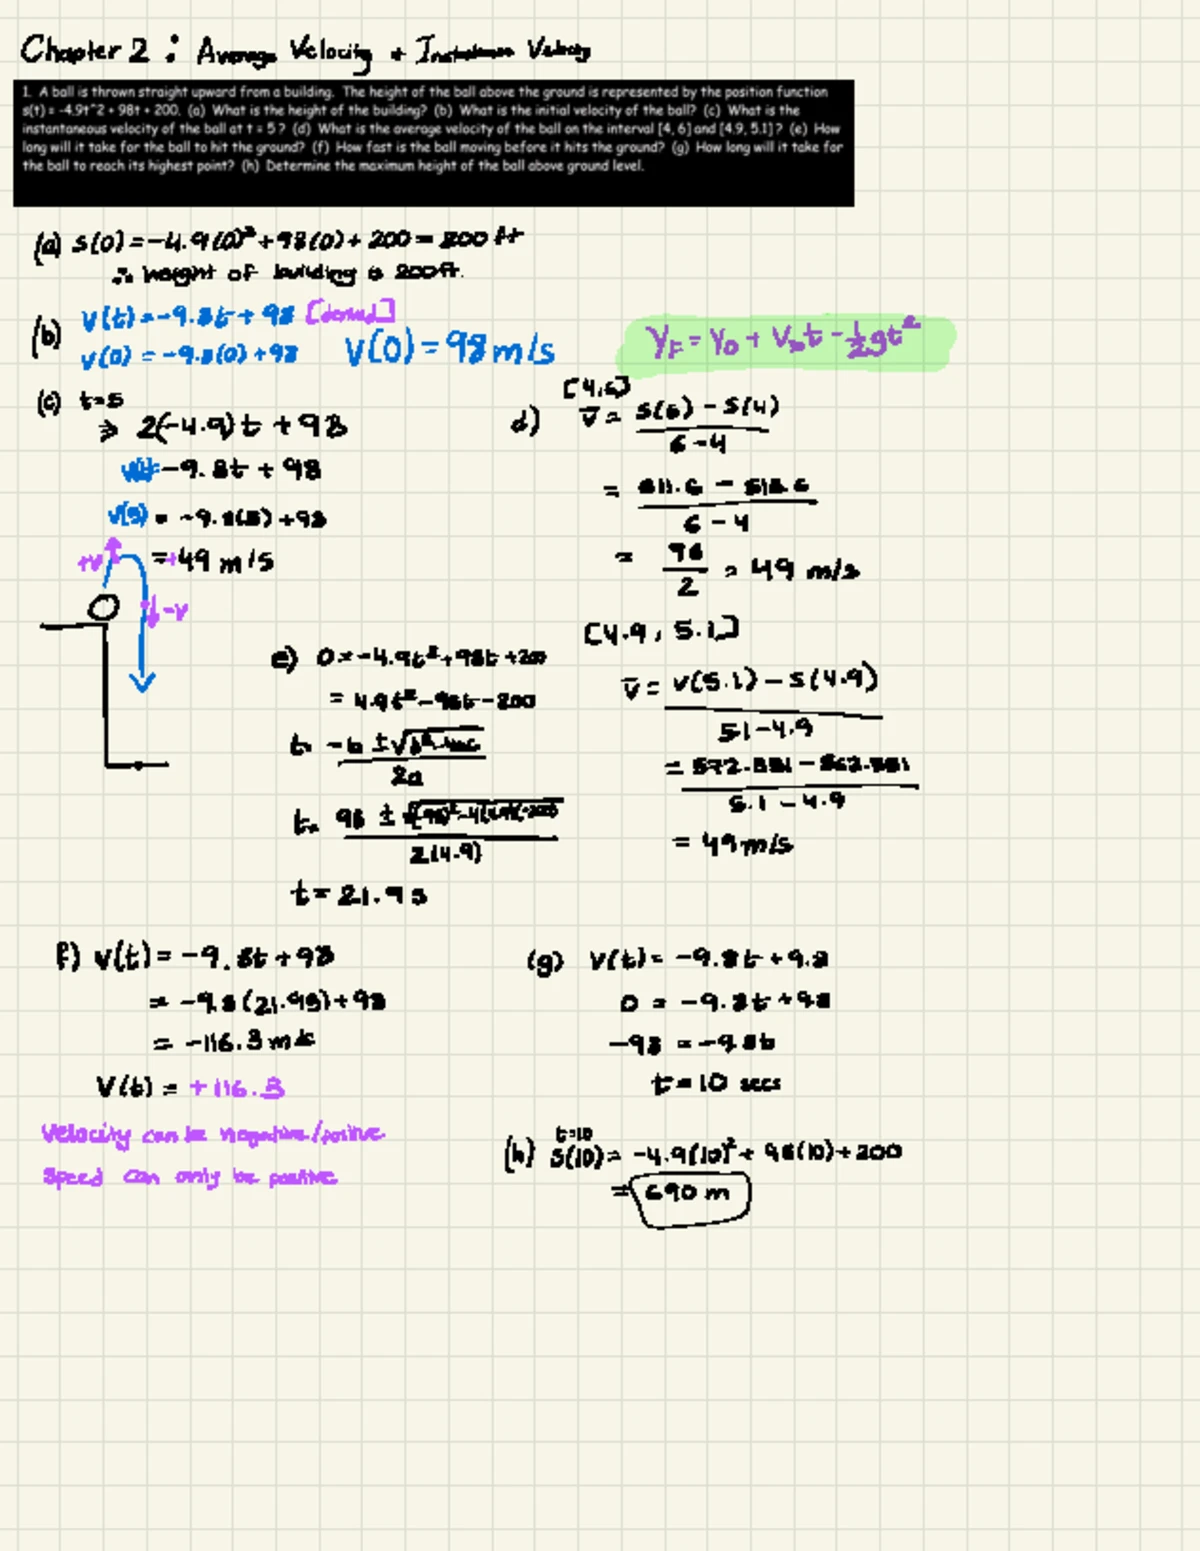 Chapter 2 : Average Velocity + Instantaneous Velocity
1. A ball is thrown straight upward from a building. The height of the ball above the ground is represented by the position function
s(t) = -4.9t^2 + 98t + 200. (a) What is the height of the building? (b) What is the initial velocity of the ball? (c) What is the
instantaneous velocity of the ball at t = 5? (d) What is the average velocity of the ball on the interval [4, 6] and [4.9, 5.1]? (e) How
long will it take for the ball to hit the ground? (f) How fast is the ball moving before it hits the ground? (g) How long will it take for
the ball to reach its highest point? (h) Determine the maximum height of the ball above ground level.
(a) s(0) = -4.9(0)² + 98(0) + 200 = 200 ft
∴ height of building is 200ft.
(b) v(t) = -9.8t + 98
v(0) = -9.8(0) + 98 v(0) = 98 m/s
Y_F = Y_0 + V_0t - 1/2gt²
(c) t=5
⇒ 2(-4.9)t + 98
-9.8t + 98
v(5) = -9.8(5) + 98
= +49 m/s
+v
-v
d) [4,6]
v̄ = s(6) - s(4)
6 - 4
= 611.6 - 513.6
6 - 4
= 98
2 = 49 m/s
[4.9, 5.1]
v̄ = v(5.1) - s(4.9)
5.1 - 4.9
5.1 - 4.9
= 49 m/s
e) 0 = -4.9t² + 98t + 200
= 4.9t² - 98t - 200
t = -b ± √b²-4ac
2a
t = 98 ± √(98)²-4(4.9)(-200)
2(4.9)
t = 21.9 s
f) v(t) = -9.8t + 98
= -9.8(21.9s) + 98
= -116.3 m/s
V(t) = +116.3
Velocity can be negative/positive
Speed can only be positive
(g) v(t) = -9.8t + 9.8
0 = -9.8t + 98
-98 = -9.8t
t = 10 secs
(h) t=10
s(10) = -4.9(10)² + 98(10) + 200
= 690 m